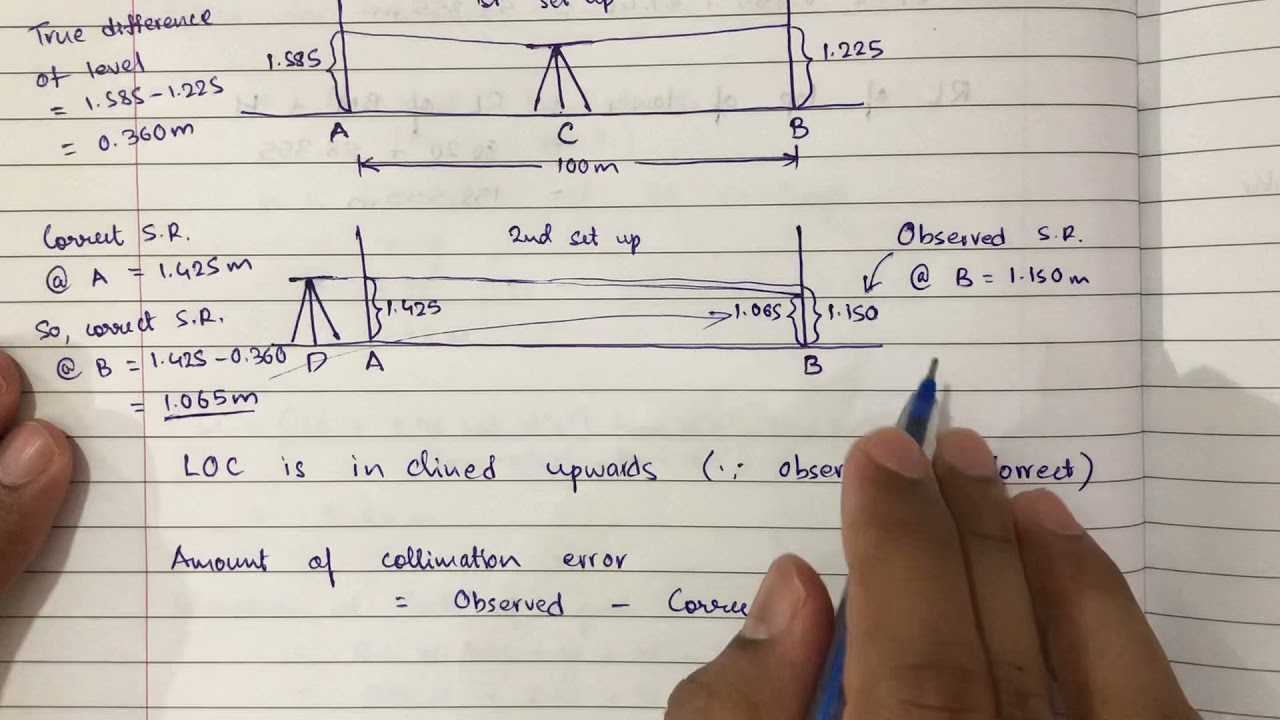 True difference
of level
= 1.585-1.225
= 0.360m
set up
1.585
1.225
A
C
B
100m
Correct S.R.
@ A = 1.425m
So, correct S.R.
@ B = 1.425-0.360
= 1.065m
2nd set up
1.425
1.065
1.150
D
A
B
Observed S.R.
@ B = 1.150m
LOC is inclined upwards (∵ obser orrect)
Amount of collimation error
= Observed - Corre
RL of of RL of